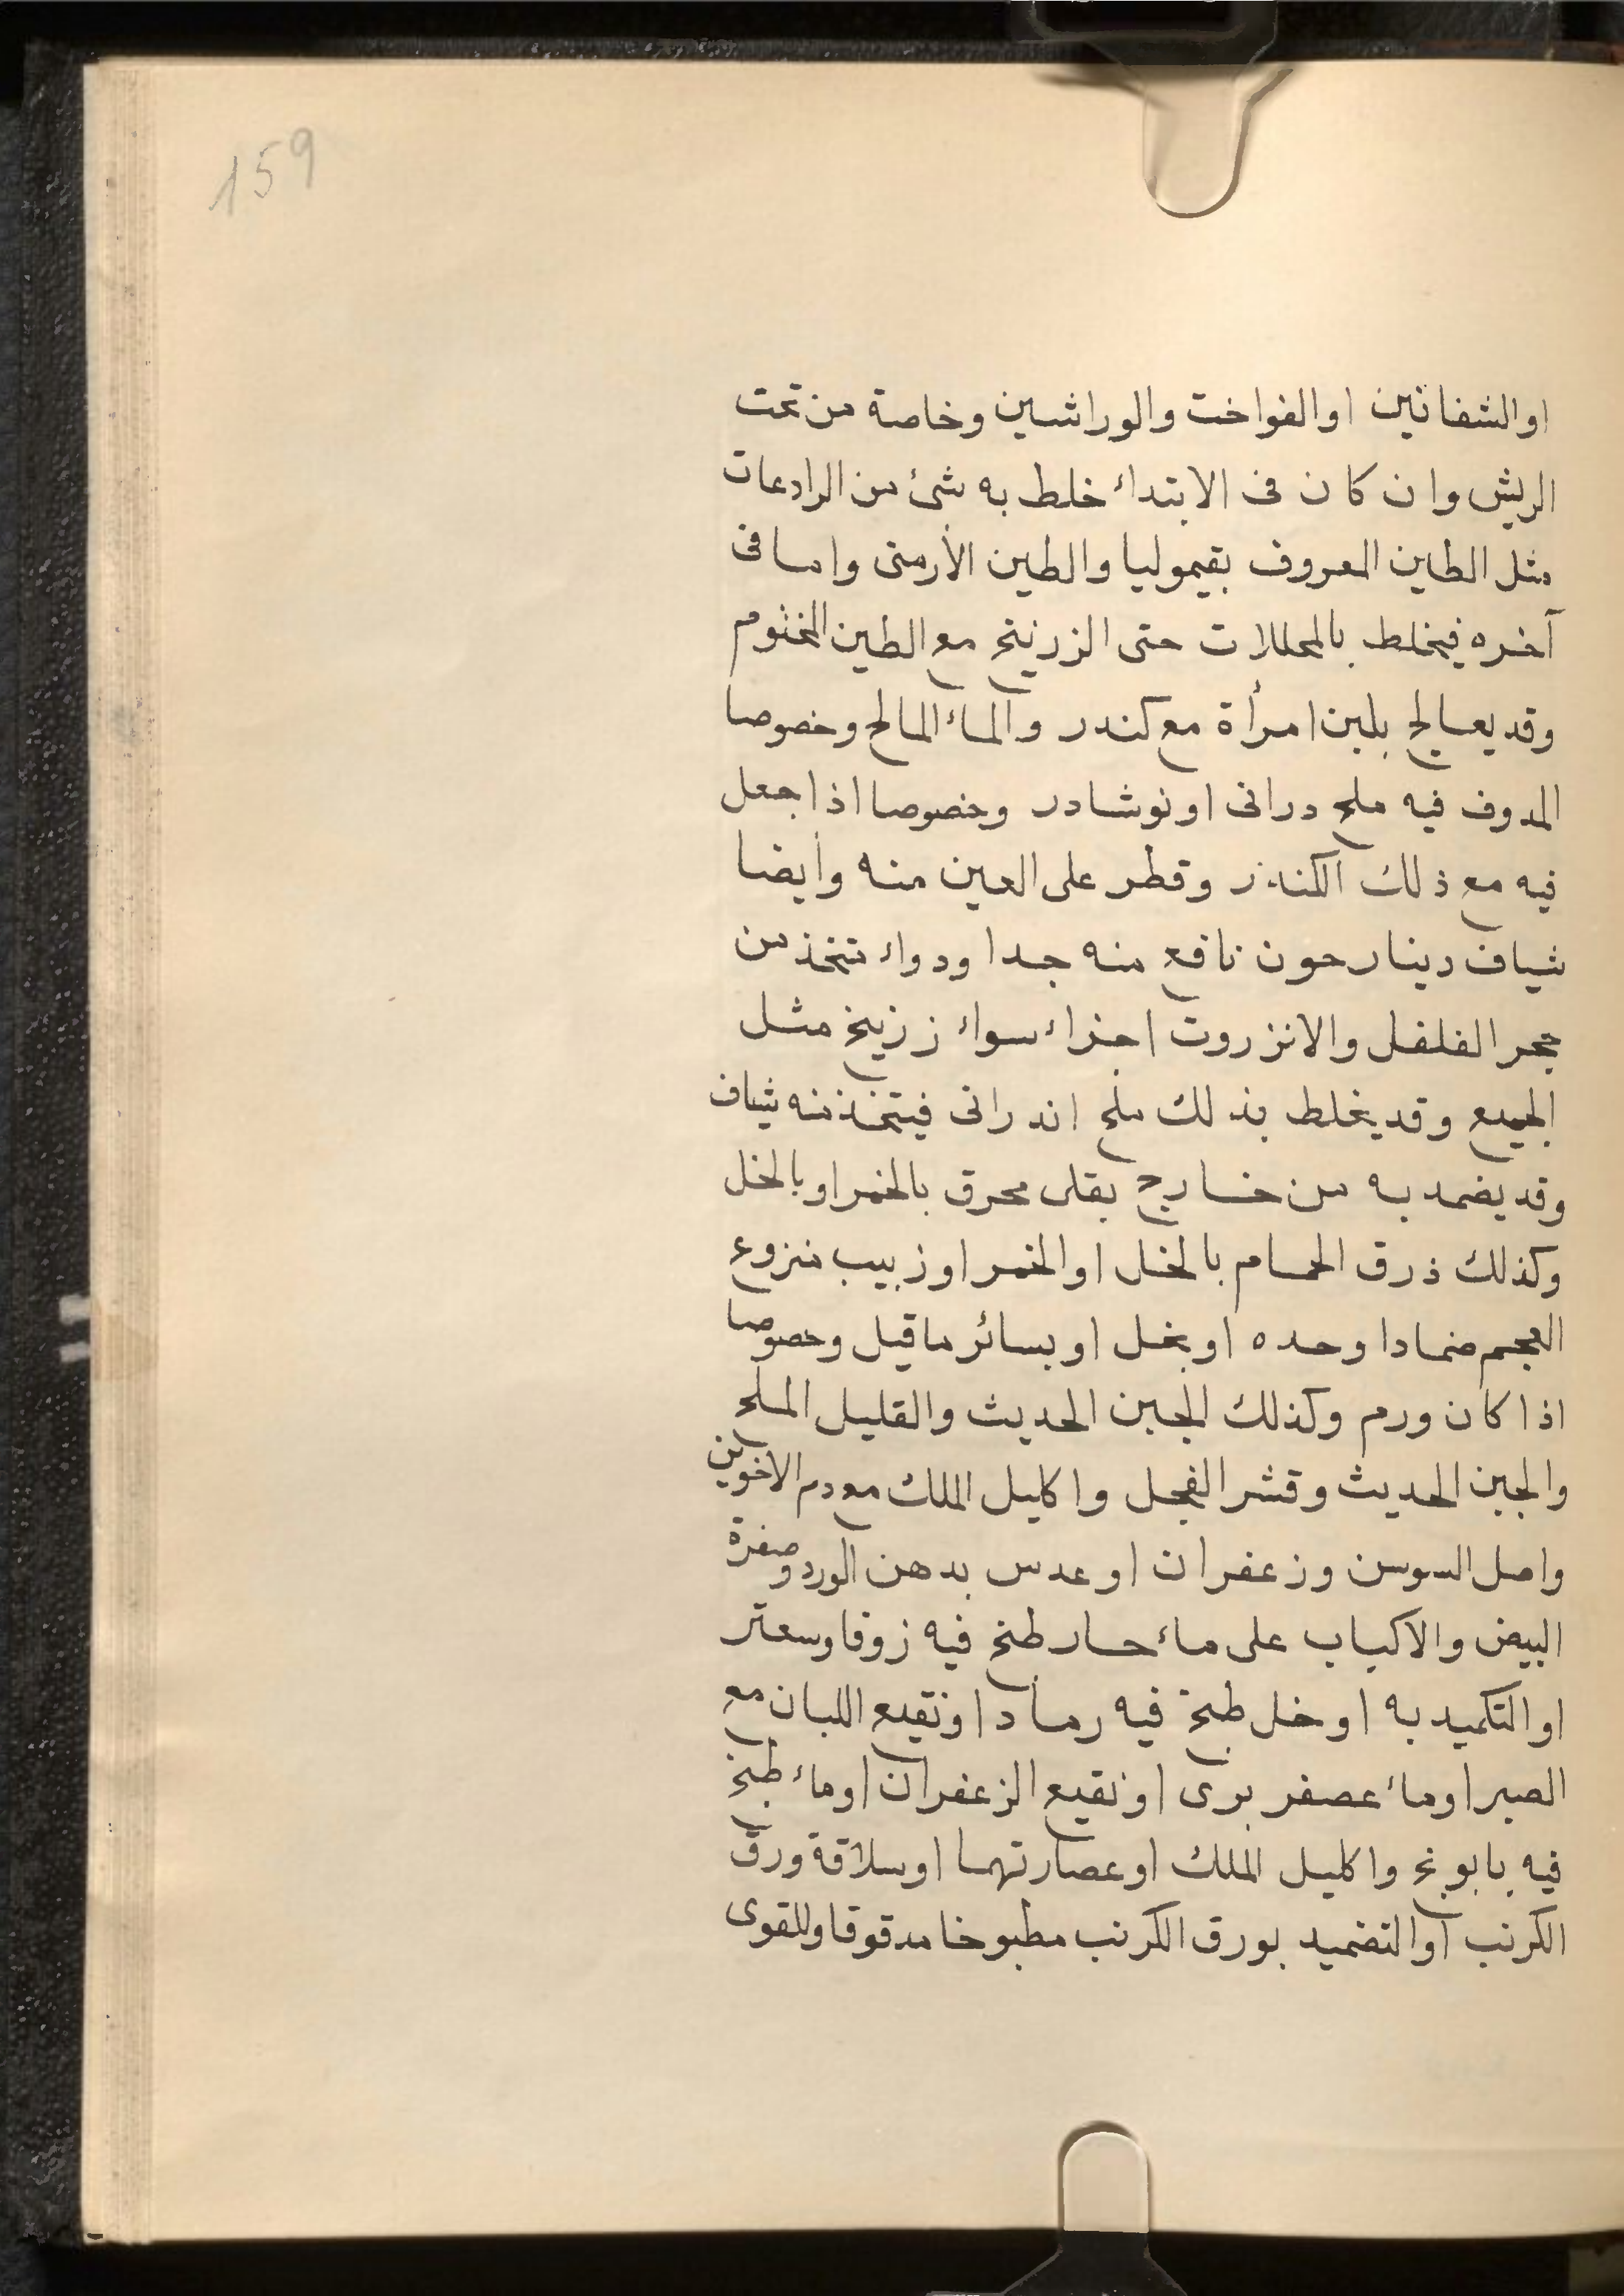 159
او الشفانين او الفواخت والوراشين وخاصة من تحت
الريش وان كان فى الابتداء خلط به شئ من الرادعات
مثل الطين المعروف بقيموليا والطين الأرمنى واما فى
آخره فيخلط بالمحللات حتى الزرنيخ مع الطين المختوم
وقد يعالج بلبن امرأة مع كندر والماء المالح وخصوصا
المدوف فيه ملح درانى او نوشادر وخصوصا اذا جعل
فيه مع ذلك الكندر وقطر على العين منه وأيضا
شياف دينارحون نافع منه جدا ودواء تتخذ من
حجر الفلفل والانزروت اجزاء سواء زرنيخ مثل
الجميع وقد يخلط بذلك ملح اندرانى فيتخذ منه شياف
وقد يضمد به من خارج بقلى محرق بالخمر او بالخل
وكذلك ذرق الحمام بالخل او الخمر او زبيب منزوع
العجم ضمادا وحده او بخل او بسائر ما قيل وخصوصا
اذا كان ورم وكذلك الجبن الحديث والقليل الملح
والجبن الحديث وقشر الفجل واكليل الملك مع دم الاخوين
واصل السوسن وزعفران او عدس بدهن الورد وصفرة
البيض والاكباب على ماء حار طبخ فيه زوفا وسعتر
او التكميد به او خل طبخ فيه رماد او نقيع اللبان مع
الصبر او ماء عصفر برى او نقيع الزعفران او ماء طبخ
فيه بابونج واكليل الملك او عصارتهما او سلاقة ورق
الكرنب او التضميد بورق الكرنب مطبوخا مدقوقا وللقوى